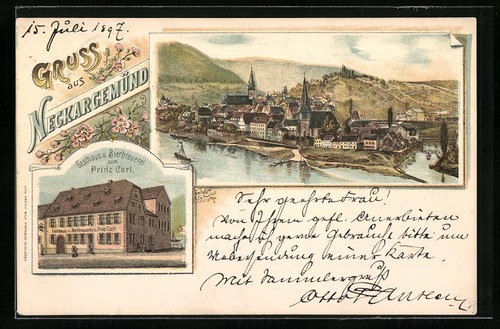 15. Juli 1897.
GRUSS
AUS
NECKARGEMÜND
Gasthaus u. Bierbrauerei
zum
Prinz Carl.
Sehr geehrte Frau!
Von Ihrem gefl. Anerbieten
mache ich gerne Gebrauch u. bitte um
Uebersendung einer Karte.
Mit Sammlergruß
Otto